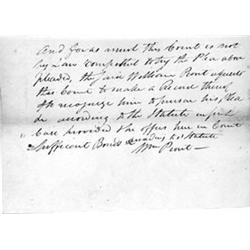 And for as much this Court is not
by Law compelled to try the Plea above
pleaded, the said William Prout requests
this Court to make a Record thereof
& to recognize him to pursue his Plea
according to the Statute in such
Case provided & he offers here in Court
Sufficient Bonds according to Statute
Wm Prout —